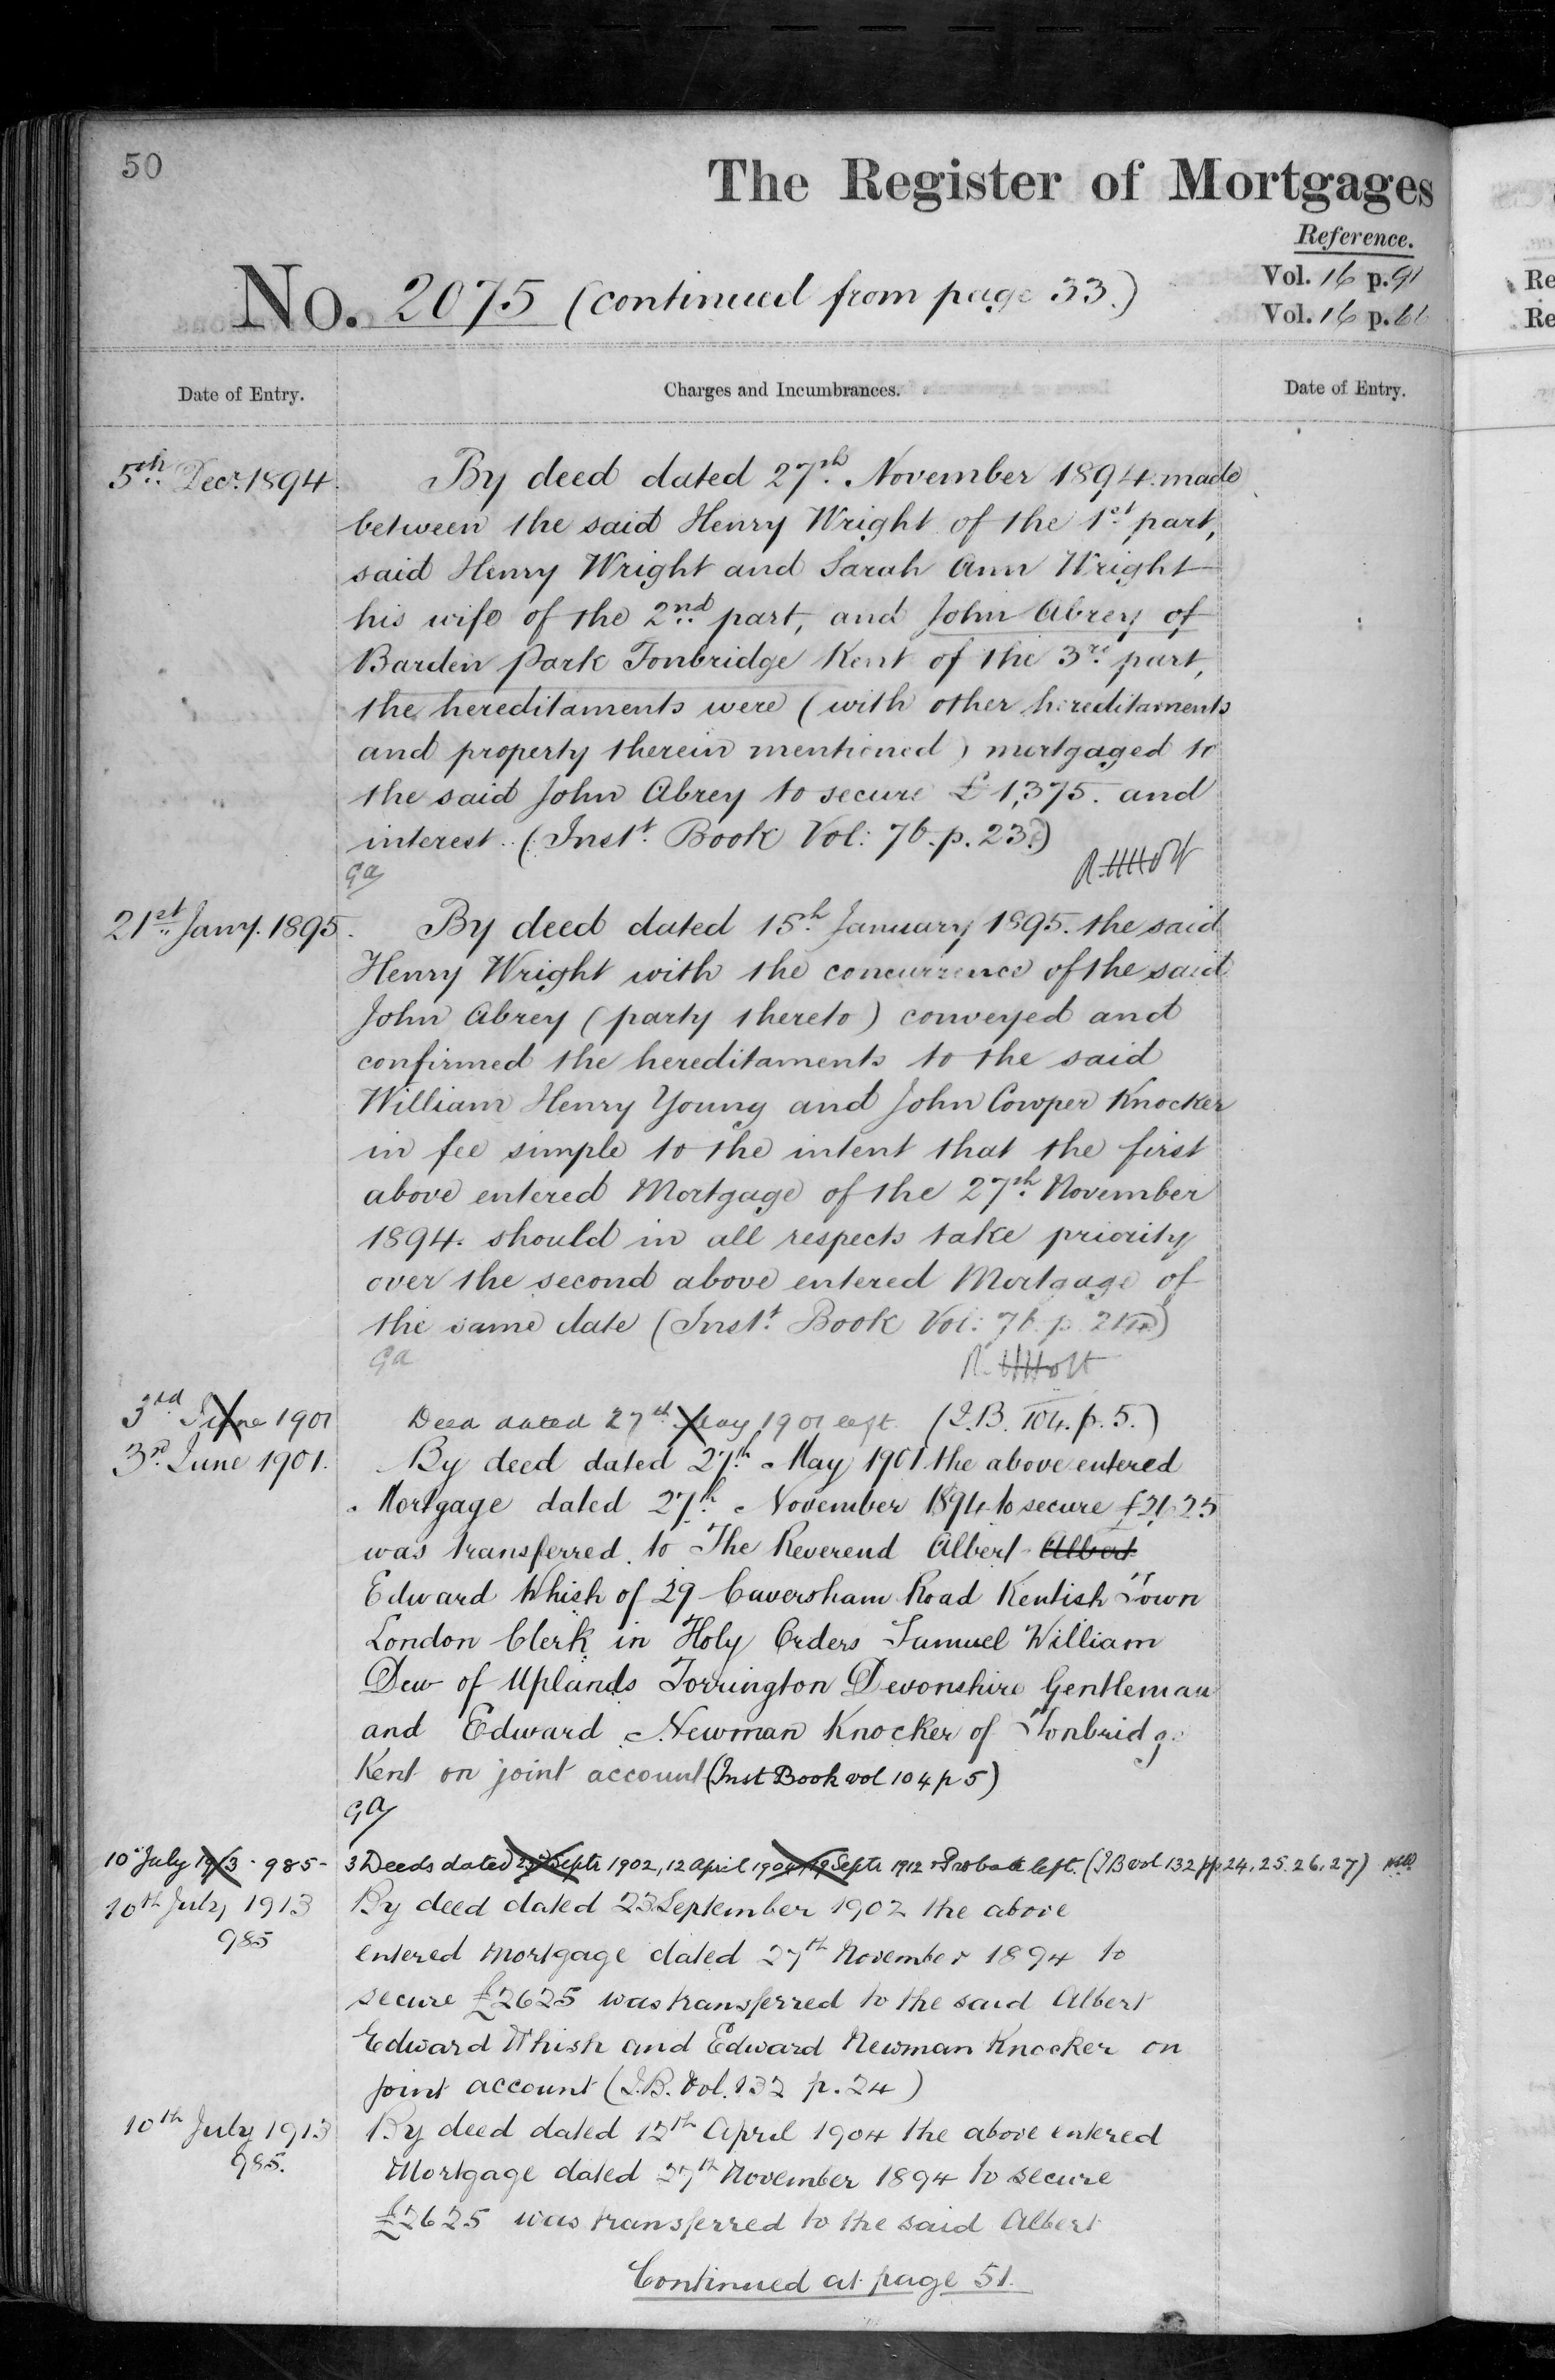 50
The Register of Mortgages
Reference.
No. 2075 (continued from page 33.)
Vol. 16 p. 91
Vol. 16 p.
Date of Entry.
Charges and Incumbrances.
Date of Entry.
5th Decr. 1894. By deed dated 27th November 1894 made
between the said Henry Wright of the 1st part,
said Henry Wright and Sarah Ann Wright
his wife of the 2nd part, and John Abrey of
Barden Park Tonbridge Kent of the 3rd part,
the hereditaments were (with other hereditaments
and property therein mentioned) mortgaged to
the said John Abrey to secure £1,375. and
interest. (Instt. Book Vol: 76. p. 23.)
GA
21st Jany. 1895. By deed dated 15th January 1895. the said
Henry Wright with the concurrence of the said
John Abrey (party thereto) conveyed and
confirmed the hereditaments to the said
William Henry Young and John Cowper Knocker
in fee simple to the intent that the first
above entered Mortgage of the 27th November
1894. should in all respects take priority
over the second above entered Mortgage of
the same date (Instt. Book Vol: 76. p.
GA
3rd June 1901 Deed dated 27th May 1901 left. (I.B. 104. p. 5.)
3rd. June 1901. By deed dated 27th May 1901 the above entered
Mortgage dated 27th November 1894 to secure £2625
was transferred to The Reverend Albert Albert
Edward Whish of 29 Caversham Road Kentish Town
London Clerk in Holy Orders Samuel William
Dew of Uplands Torrington Devonshire Gentleman
and Edward Newman Knocker of Tonbridge
Kent on joint account (Inst Book vol 104 p 5)
GA
10th July 1913 - 985 - 3 Deeds dated 23rd Septr 1902, 12 April 1904, 19 Septr 1912 & Probate left. (I B vol 132 pp 24, 25. 26. 27)
10th July 1913 By deed dated 23 September 1902 the above
985
entered Mortgage dated 27th November 1894 to
secure £2625 was transferred to the said Albert
Edward Whish and Edward Newman Knocker on
joint account (I.B. Vol. 132 p. 24)
10th July 1913 By deed dated 12th April 1904 the above entered
985.
Mortgage dated 27th November 1894 to secure
£2625 was transferred to the said Albert
Continued at page 51.
Re
Re